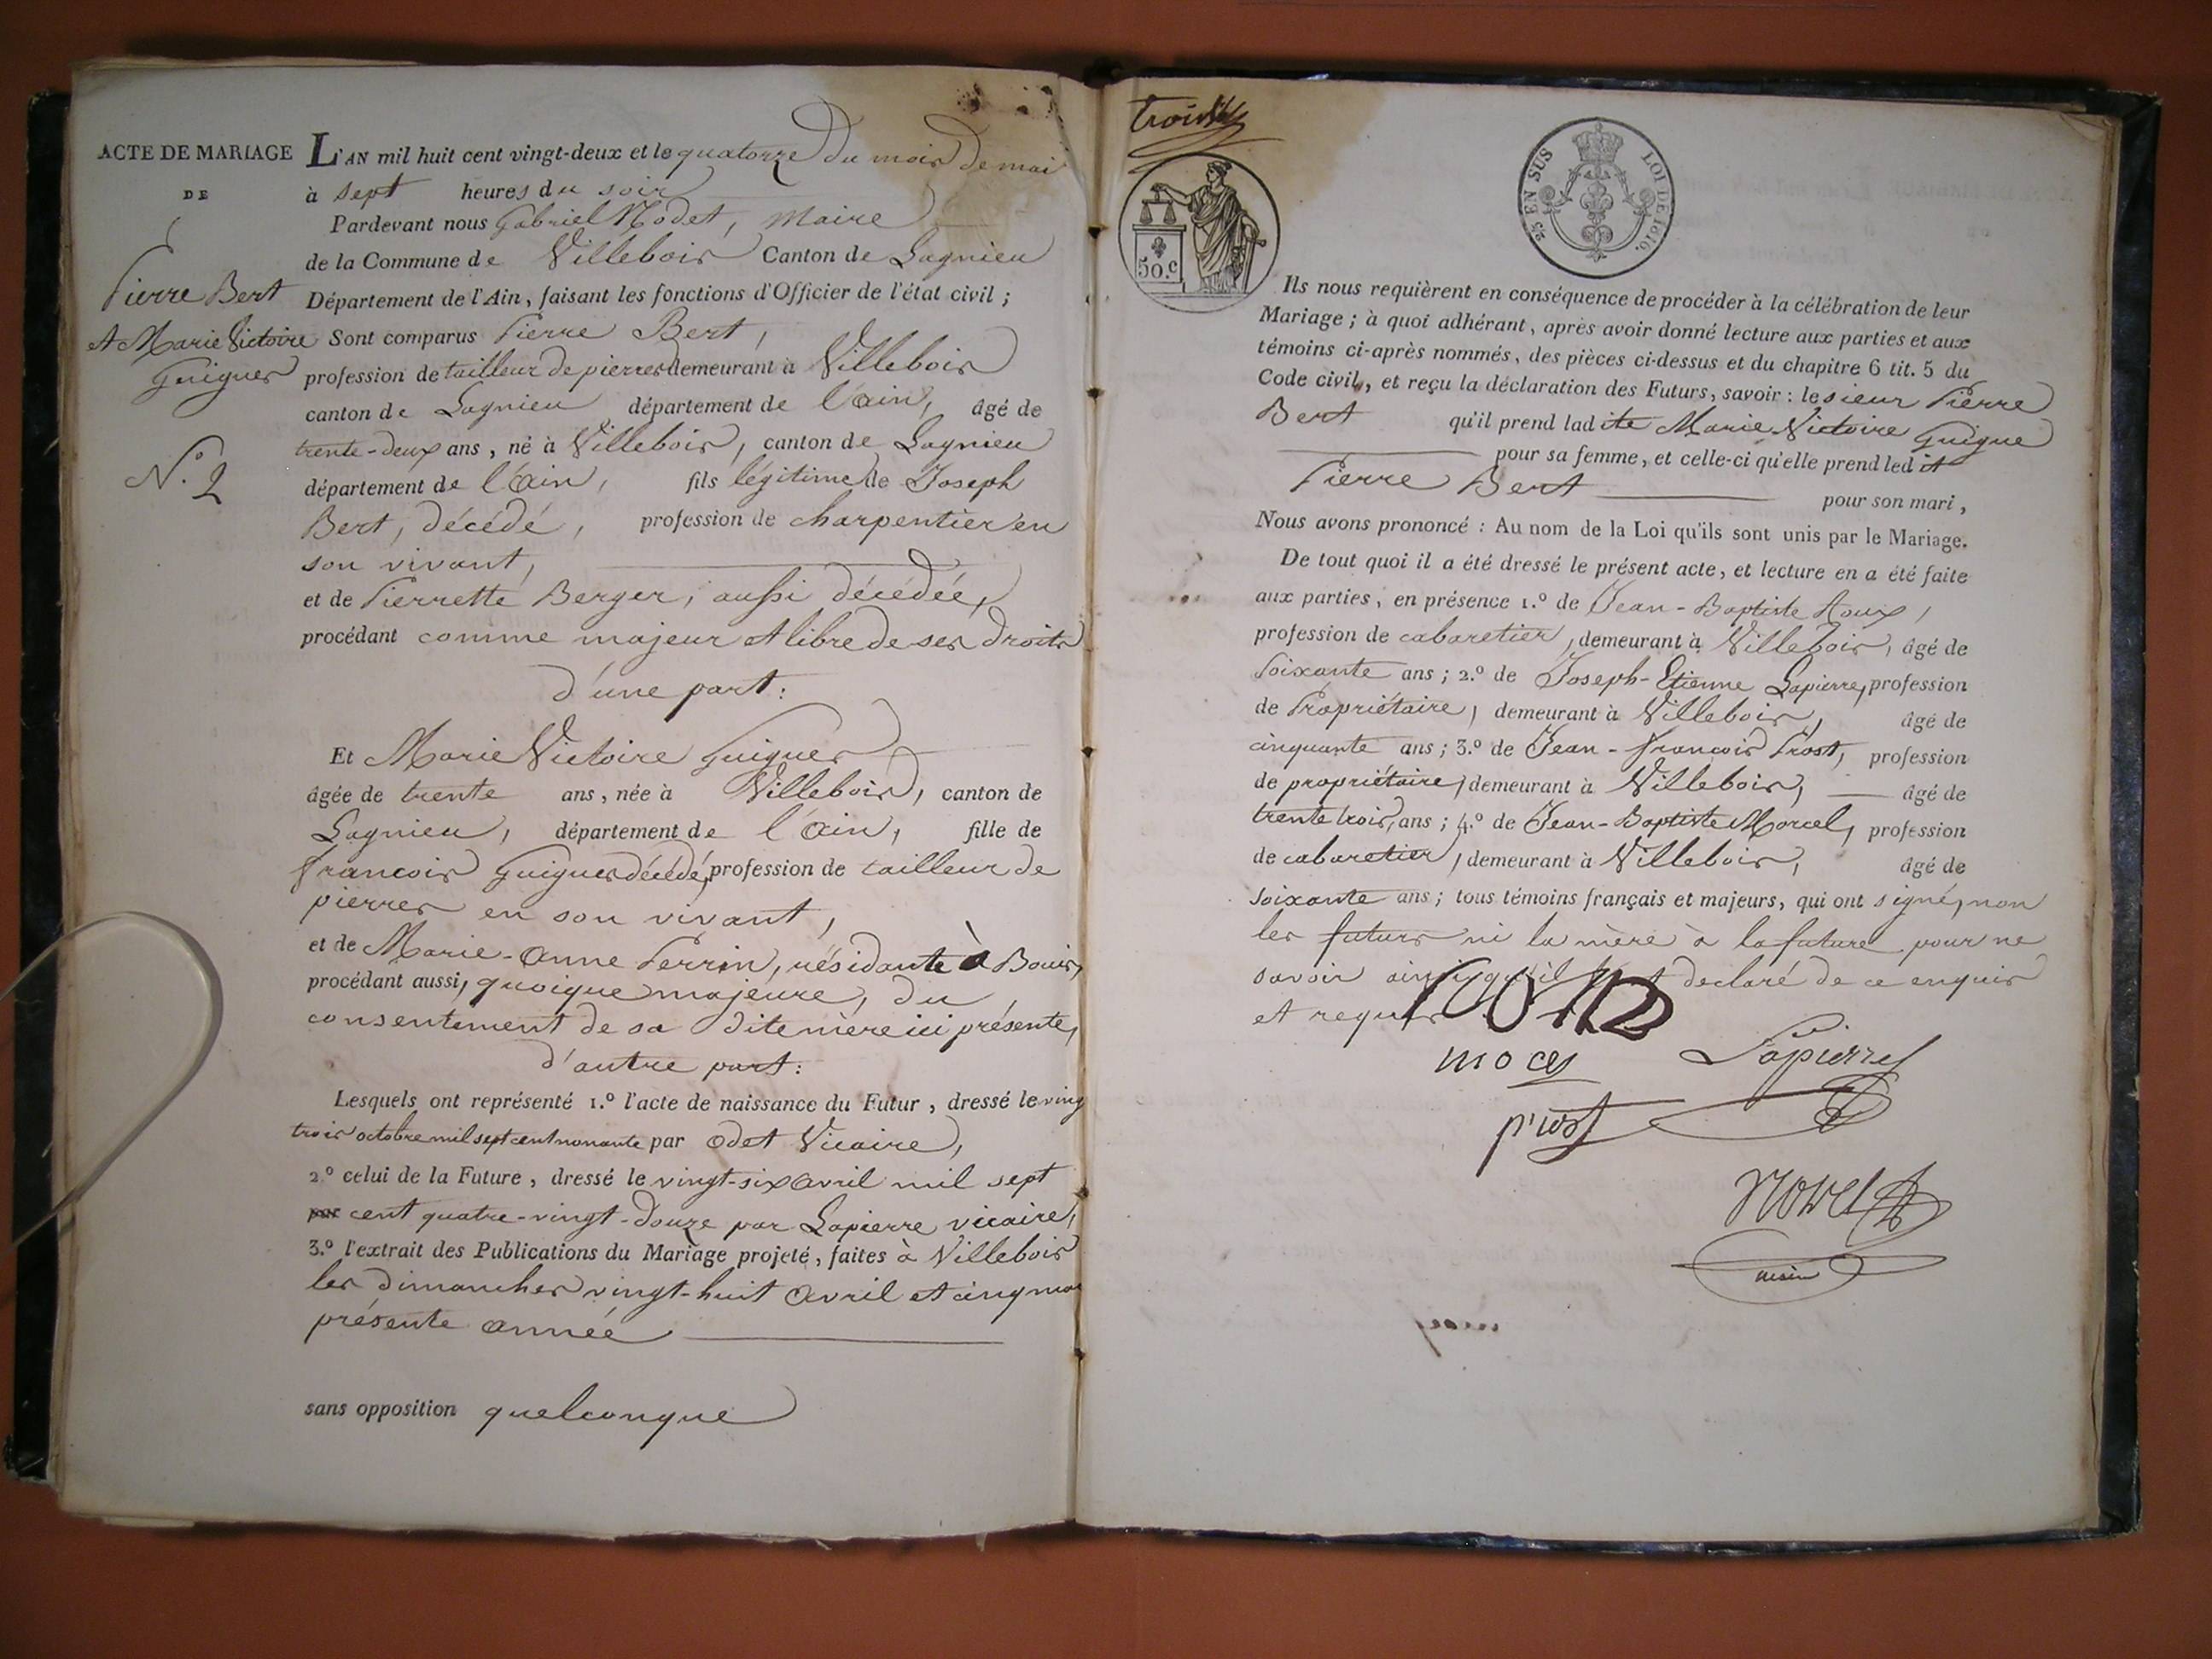 ACTE DE MARIAGE
DE
Pierre Bert
et Marie Victoire
Guigues
N.o 2
L'AN mil huit cent vingt-deux et le quatorze du mois de mai
à sept heures du soir
Pardevant nous Gabriel Nodet, Maire
de la Commune de Villebois Canton de Lagnieu
Département de l'Ain, faisant les fonctions d'Officier de l'état civil ;
Sont comparus Pierre Bert,
profession de tailleur de pierres demeurant à Villebois
canton de Lagnieu département de l'ain, âgé de
trente-deux ans, né à Villebois, canton de Lagnieu
département de l'ain, fils légitime de Joseph
Bert, décédé, profession de charpentier en
son vivant,
et de Pierrette Berger, aussi décédée,
procédant comme majeur et libre de ses droits
d'une part :
Et Marie Victoire Guigues
âgée de trente ans, née à Villebois, canton de
Lagnieu, département de l'ain, fille de
francois Guigues décédé, profession de tailleur de
pierres en son vivant,
et de Marie-anne Perrin, résidante à Bouis,
procédant aussi, quoique majeure, du
consentement de sa dite mère ici présente,
d'autre part :
Lesquels ont représenté 1.o l'acte de naissance du Futur, dressé le ving
trois octobre mil sept cent nonante par odet Vicaire,
2.o celui de la Future, dressé le vingt-six avril mil sept
par cent quatre-vingt-douze par Lapierre vicaire,
3.o l'extrait des Publications du Mariage projeté, faites à Villebois
les dimanches vingt-huit avril et cinq mai
présente année
sans opposition quelconque
50.c
25 EN SUS LOI DE 1816.
Ils nous requièrent en conséquence de procéder à la célébration de leur
Mariage ; à quoi adhérant, après avoir donné lecture aux parties et aux
témoins ci-après nommés, des pièces ci-dessus et du chapitre 6 tit. 5 du
Code civil, et reçu la déclaration des Futurs, savoir : le sieur Pierre
Bert qu'il prend ladite Marie Victoire Guigue
pour sa femme, et celle-ci qu'elle prend ledit
Pierre Bert pour son mari,
Nous avons prononcé : Au nom de la Loi qu'ils sont unis par le Mariage.
De tout quoi il a été dressé le présent acte, et lecture en a été faite
aux parties, en présence 1.o de Jean-Baptiste Roux,
profession de cabaretier, demeurant à Villebois, âgé de
soixante ans ; 2.o de Joseph-Etienne Lapierre, profession
de Propriétaire, demeurant à Villebois, âgé de
cinquante ans ; 3.o de Jean-francois Prost, profession
de propriétaire, demeurant à Villebois, âgé de
trente trois, ans ; 4.o de Jean-Baptiste Marcel, profession
de cabaretier, demeurant à Villebois, âgé de
soixante ans ; tous témoins français et majeurs, qui ont signé, non
les futurs ni la mère à la future pour ne
savoir ainsi qu'il declaré de ce enquis
et requis
Lapierre
prost
maire